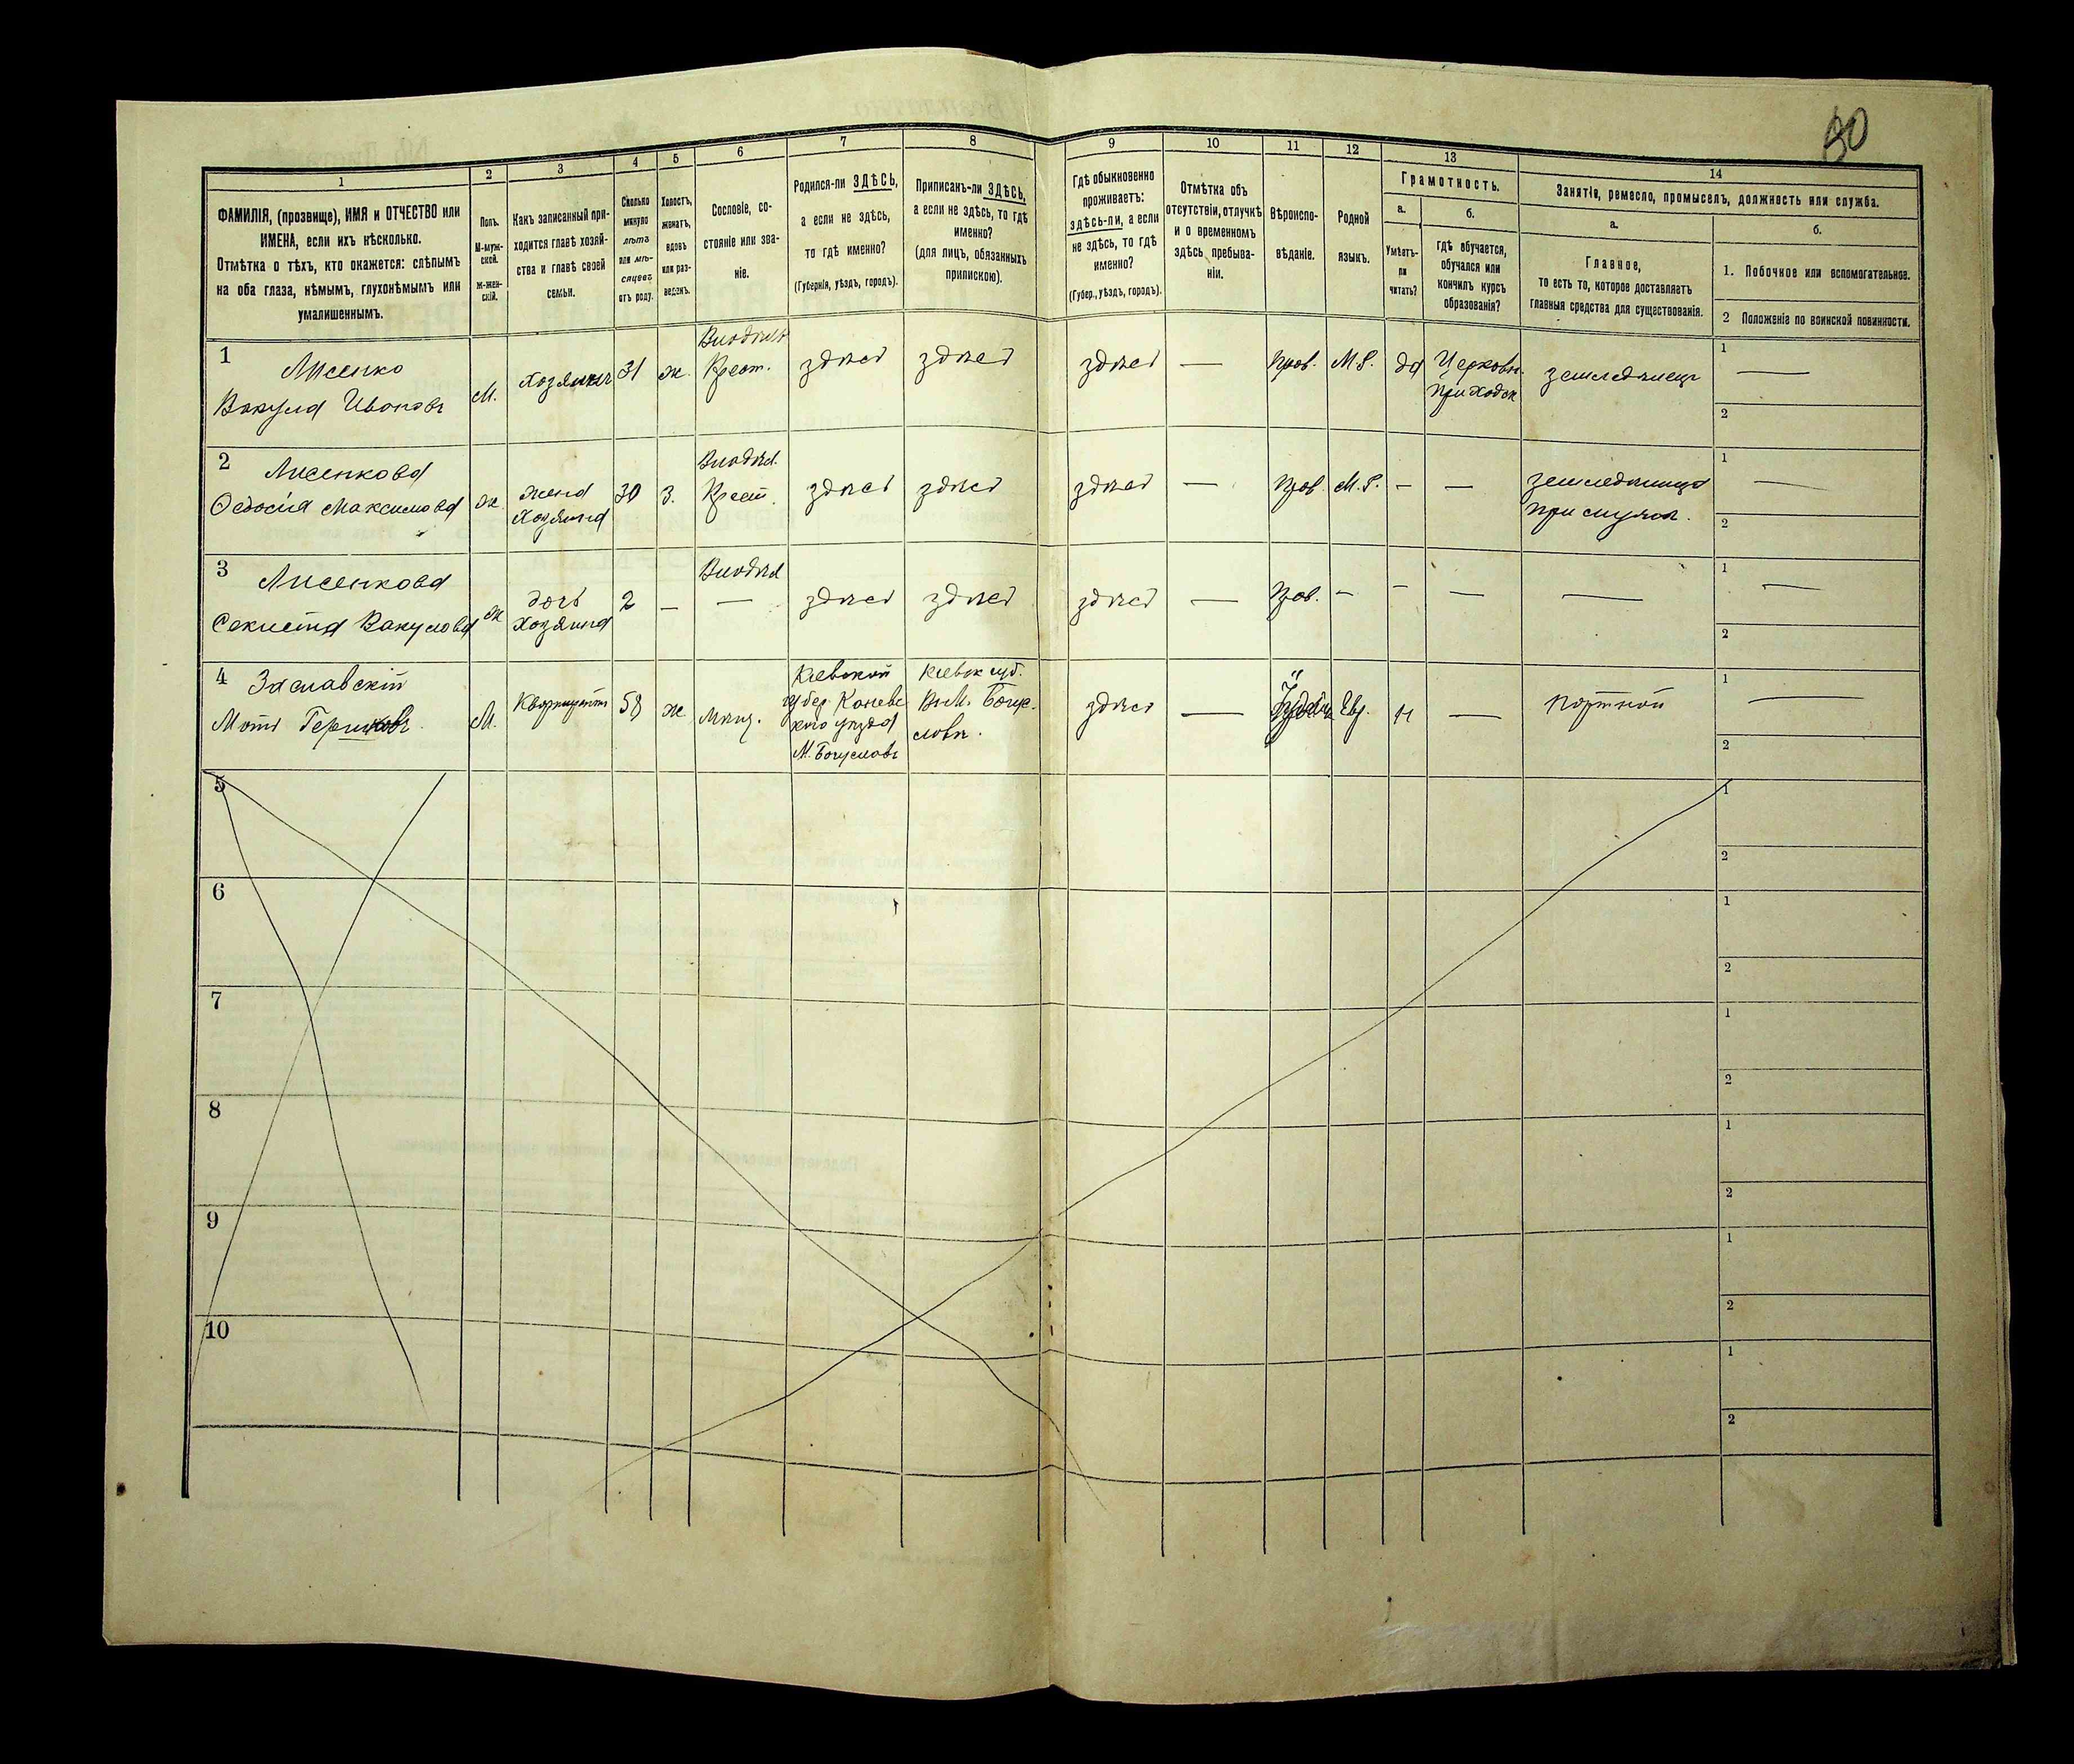 80
1
2
3
4
5
6
7
8
9
10
11
12
13
14
ФАМИЛІЯ, (прозвище), ИМЯ и ОТЧЕСТВО или
ИМЕНА, если ихъ нѣсколько.
Отмѣтка о тѣхъ, кто окажется: слѣпымъ
на оба глаза, нѣмымъ, глухонѣмымъ или
умалишеннымъ.
Полъ.
М-муж-
ской.
Ж-жен-
скій.
Какъ записанный при-
ходится главѣ хозяй-
ства и главѣ своей
семьи.
Сколько
минуло
лѣтъ
или мѣ-
сяцевъ
отъ роду.
Холостъ,
женатъ,
вдовъ
или раз-
веденъ.
Сословіе, со-
стояніе или зва-
ніе.
Родился-ли ЗДѢСЬ,
а если не здѣсь,
то гдѣ именно?
(Губернія, уѣздъ, городъ).
Приписанъ-ли ЗДѢСЬ,
а если не здѣсь, то гдѣ
именно?
(для лицъ, обязанныхъ
припискою).
Гдѣ обыкновенно
проживаетъ:
здѣсь-ли, а если
не здѣсь, то гдѣ
именно?
(Губер., уѣздъ, городъ).
Отмѣтка объ
отсутствіи, отлучкѣ
и о временномъ
здѣсь пребыва-
ніи.
Вѣроиспо-
вѣданіе.
Родной
языкъ.
Грамотность.
а.
Умѣетъ-
ли
читать?
б.
Гдѣ обучается,
обучался или
кончилъ курсъ
образованія?
Занятіе, ремесло, промыселъ, должность или служба.
а.
Главное,
то есть то, которое доставляетъ
главныя средства для существованія.
б.
1. Побочное или вспомогательное.
2 Положеніе по воинской повинности.
1
Лисенко
Вакула Ивановъ
М.
хозяинъ
31
ж.
Крест.
здѣсь
здѣсь
здѣсь
—
Прав.
М.Р.
да
Церковн.
приходск
земледѣлецъ
1
—
2
2
Лисенкова
Федосія Максимова
ж.
жена
хозяина
30
З.
Крест.
здѣсь
здѣсь
здѣсь
—
Прав.
М.Р.
—
—
1
—
2
3
Лисенкова
Вакулова
ж
дочь
хозяина
2
—
—
здѣсь
здѣсь
здѣсь
—
Прав.
—
—
—
—
1
—
2
4
Заславскій
М.
58
ж
мѣщ.
Кіевской
губер Каневс
кого уѣзда
М. Богуславъ
Кіевск губ.
В М. Богус-
лавѣ.
здѣсь
—
Евр.
н
—
портной
1
—
2
5
1
2
6
1
2
7
1
2
8
1
2
9
1
2
10
1
2